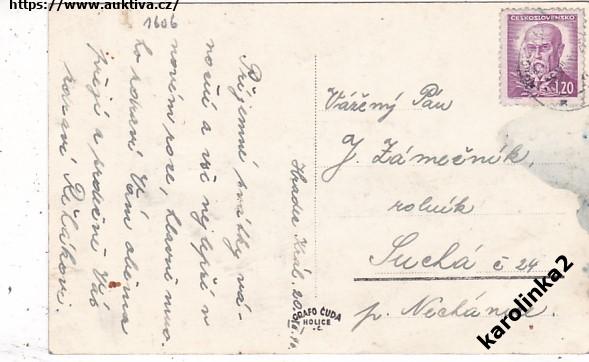 https://www.auktiva.cz/
1606
Příjemné svátky vá-
noční a vše nejlepší v
novém roce, hlavně mno
ho zdraví Vám všem
přejí a srdečně Vás
zdraví Řehákovi.
Hradec Král. 20.
GRAFO ČUDA
HOLICE
ČESKOSLOVENSKO
1.20
Vážený Pán
J. Zámečník,
rolník
Suchá č 24
p. Nechanice
karolinka2